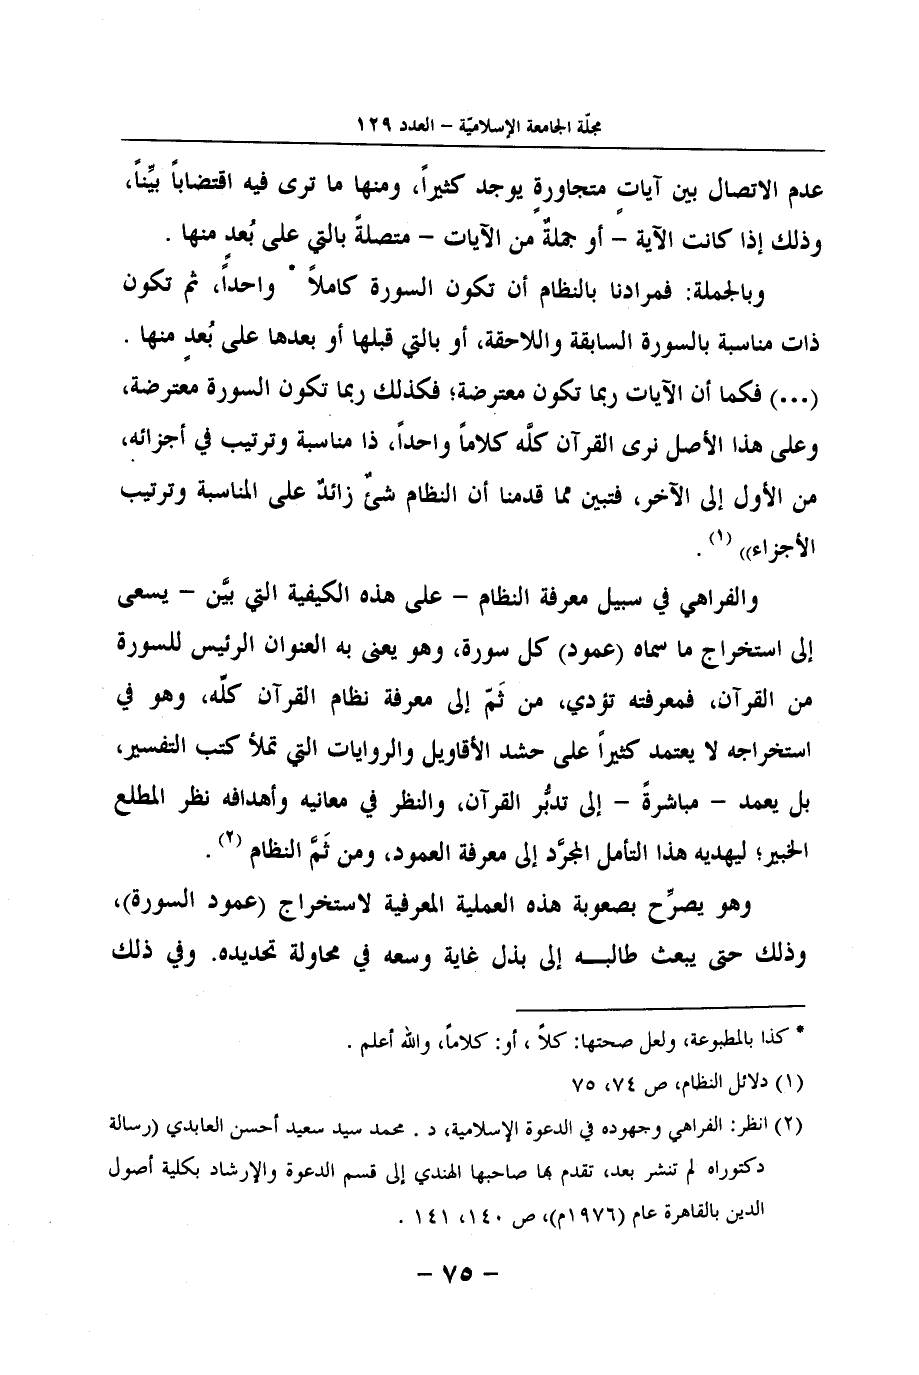 مجلّة الجامعة الإسلاميّة – العدد ١٢٩
عدم الاتصال بين آياتٍ متجاورةٍ يوجد كثيراً، ومنها ما ترى فيه اقتضاباً بيِّناً،
وذلك إذا كانت الآية – أو جملةٌ من الآيات – متصلةً بالتي على بُعدٍ منها .
وبالجملة: فمرادنا بالنظام أن تكون السورة كاملاً * واحداً، ثم تكون
ذات مناسبة بالسورة السابقة واللاحقة، أو بالتي قبلها أو بعدها على بُعدٍ منها .
(...) فكما أن الآيات ربما تكون معترضة؛ فكذلك ربما تكون السورة معترضة،
وعلى هذا الأصل نرى القرآن كلَّه كلاماً واحداً، ذا مناسبة وترتيب في أجزائه،
من الأول إلى الآخر، فتبين مما قدمنا أن النظام شئٌ زائدٌ على المناسبة وترتيب
الأجزاء)) (١) .
والفراهي في سبيل معرفة النظام – على هذه الكيفية التي بيَّن – يسعى
إلى استخراج ما سماه (عمود) كل سورة، وهو يعنى به العنوان الرئيس للسورة
من القرآن، فمعرفته تؤدي، من ثَمّ إلى معرفة نظام القرآن كلّه، وهو في
استخراجه لا يعتمد كثيراً على حشد الأقاويل والروايات التي تملأ كتب التفسير،
بل يعمد – مباشرةً – إلى تدبُّر القرآن، والنظر في معانيه وأهدافه نظر المطلع
الخبير؛ ليهديه هذا التأمل المجرَّد إلى معرفة العمود، ومن ثَمَّ النظام (٢) .
وهو يصرِّح بصعوبة هذه العملية المعرفية لاستخراج (عمود السورة)،
وذلك حتى يبعث طالبـــه إلى بذل غاية وسعه في محاولة تحديده. وفي ذلك
* كذا بالمطبوعة، ولعل صحتها: كلاً ، أو: كلاماً، والله أعلم .
(١) دلائل النظام، ص ٧٤، ٧٥
(٢) انظر: الفراهي وجهوده في الدعوة الإسلامية، د . محمد سيد سعيد أحسن العابدي (رسالة
دكتوراه لم تنشر بعد، تقدم بها صاحبها الهندي إلى قسم الدعوة والإرشاد بكلية أصول
الدين بالقاهرة عام (١٩٧٦م)، ص ١٤٠، ١٤١ .
– ٧٥ –